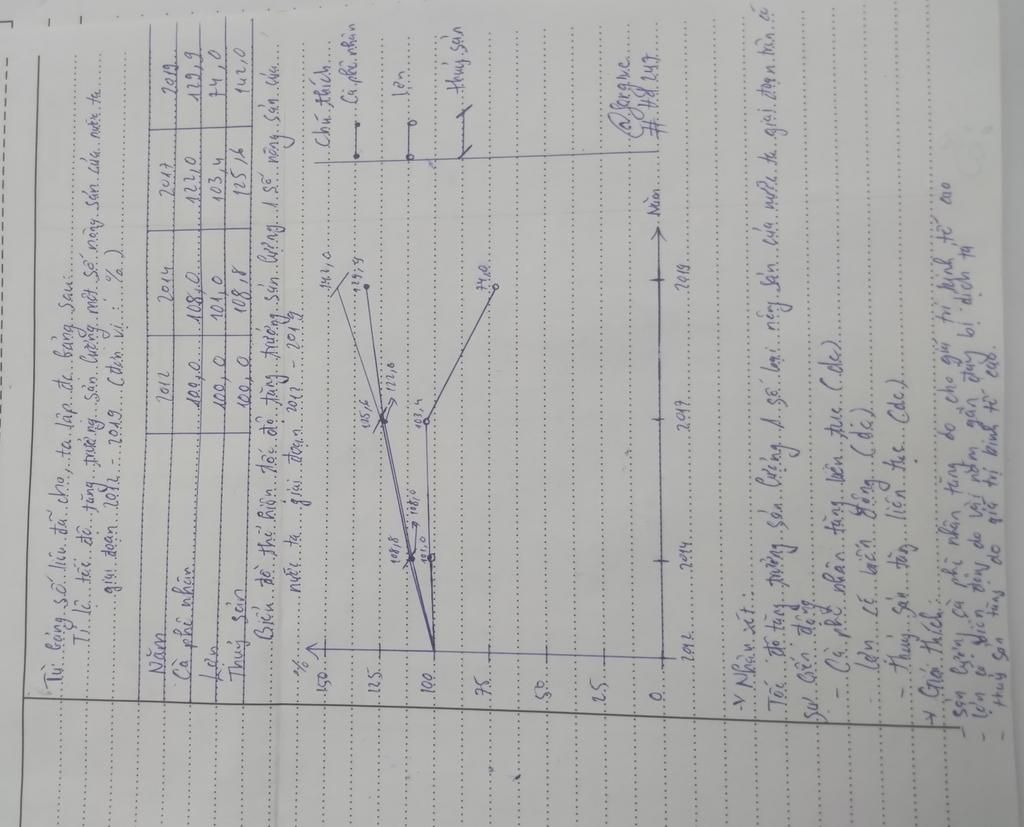 Từ bảng số liệu đã cho, ta lập đc bảng sau:
Tỉ lệ tốc độ tăng trưởng sản lượng một số nông sản của nước ta
giai đoạn 2012 - 2019 (đơn vị: %)
Năm 2012 2014 2017 2019
Cà phê nhân 100,0 108,0 122,0 129,9
Lợn 100,0 101,0 103,4 74,0
Thủy sản 100,0 108,8 125,6 142,0
Biểu đồ thể hiện tốc độ tăng trưởng sản lượng 1 số nông sản của
nước ta giai đoạn 2012 - 2019
%
150
125
100
75
50
25
0
2012 2014 2017 2019 Năm
108,8
108,0
101,0
125,6
122,0
103,4
142,0
129,9
74,0
Chú thích
Cà phê nhân
Lợn
thủy sản
v Nhận xét:
Tốc độ tăng trưởng sản lượng 1 số loại nông sản của nước ta giai đoạn trên có
sự biến động
- Cà phê nhân tăng liên tục (dc)
- Lợn có biến động (dc)
- thủy sản tăng liên tục (dc)
v Giải thích:
- Sản lượng cà phê nhân tăng do cho giá trị kinh tế cao
- Lợn có biến động do vài năm gần đây bị dịch tả
- thủy sản tăng do giá trị kinh tế cao